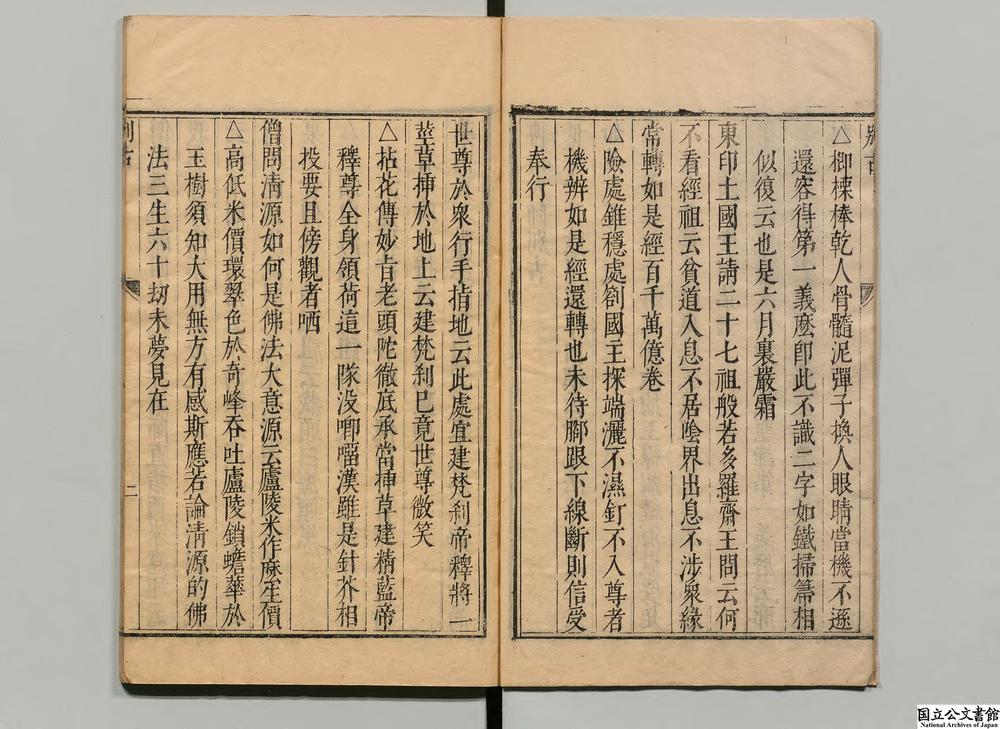 △榔楳棒乾人骨髓泥彈子換人眼睛當機不遜
還容得第一義麽卽此不識二字如鐵掃箒相
似復云也是六月裏嚴霜
東印土國王請二十七祖般若多羅齋王問云何
不看經祖云貧道入息不居陰界出息不涉衆緣
常轉如是經百千萬億卷
△險處錐穩處劄國王探端灑不濕釘不入尊者
機辨如是經還轉也未待腳跟下線斷則信受
奉行
世尊於衆行手指地云此處宜建梵刹帝釋將一
莖草揷於地上云建梵刹已竟世尊微笑
△拈花傳妙旨老頭陀徹底承當揷草建精藍帝
釋尊全身領荷這一隊没啣𠺕漢雖是針芥相
投要且傍觀者哂
僧問淸源如何是佛法大意源云廬陵米作麽生價
△高低米價環翠色於奇峰呑吐廬陵鎖蟾華於
玉樹須知大用無方有感斯應若論淸源的佛
法三生六十劫未夢見在
二
国立公文書館
National Archives of Japan